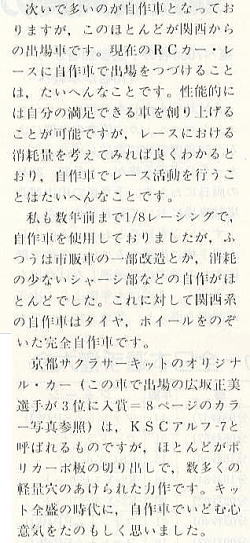 次いで多いのが自作車となってお
りますが、このほとんどが関西から
の出場車です。現在のＲＣカー・レ
ースに自作車で出場をつづけること
は、たいへんなことです。性能的に
は自分の満足できる車を創り上げる
ことが可能ですが、レースにおける
消耗量を考えてみれば良くわかると
おり、自作車でレース活動を行うこ
とはたいへんなことです。
私も数年前まで1/8レーシングで、
自作車を使用しておりましたが、ふ
つうは市販車の一部改造とか、消耗
の少ないシャーシ部などの自作がほ
とんどでした。これに対して関西系
の自作車はタイヤ、ホイールをのぞ
いた完全自作車です。
京都サクラサーキットのオリジナ
ル・カー（この車で出場の広坂正美
選手が３位に入賞＝８ページのカラ
ー写真参照）は、ＫＳＣアルフ-7と
呼ばれるものですが、ほとんどがポ
リカーボ板の切り出しで、数多くの
軽量穴のあけられた力作です。キッ
ト全盛の時代に、自作車でいどむ心
意気をたのもしく思いました。